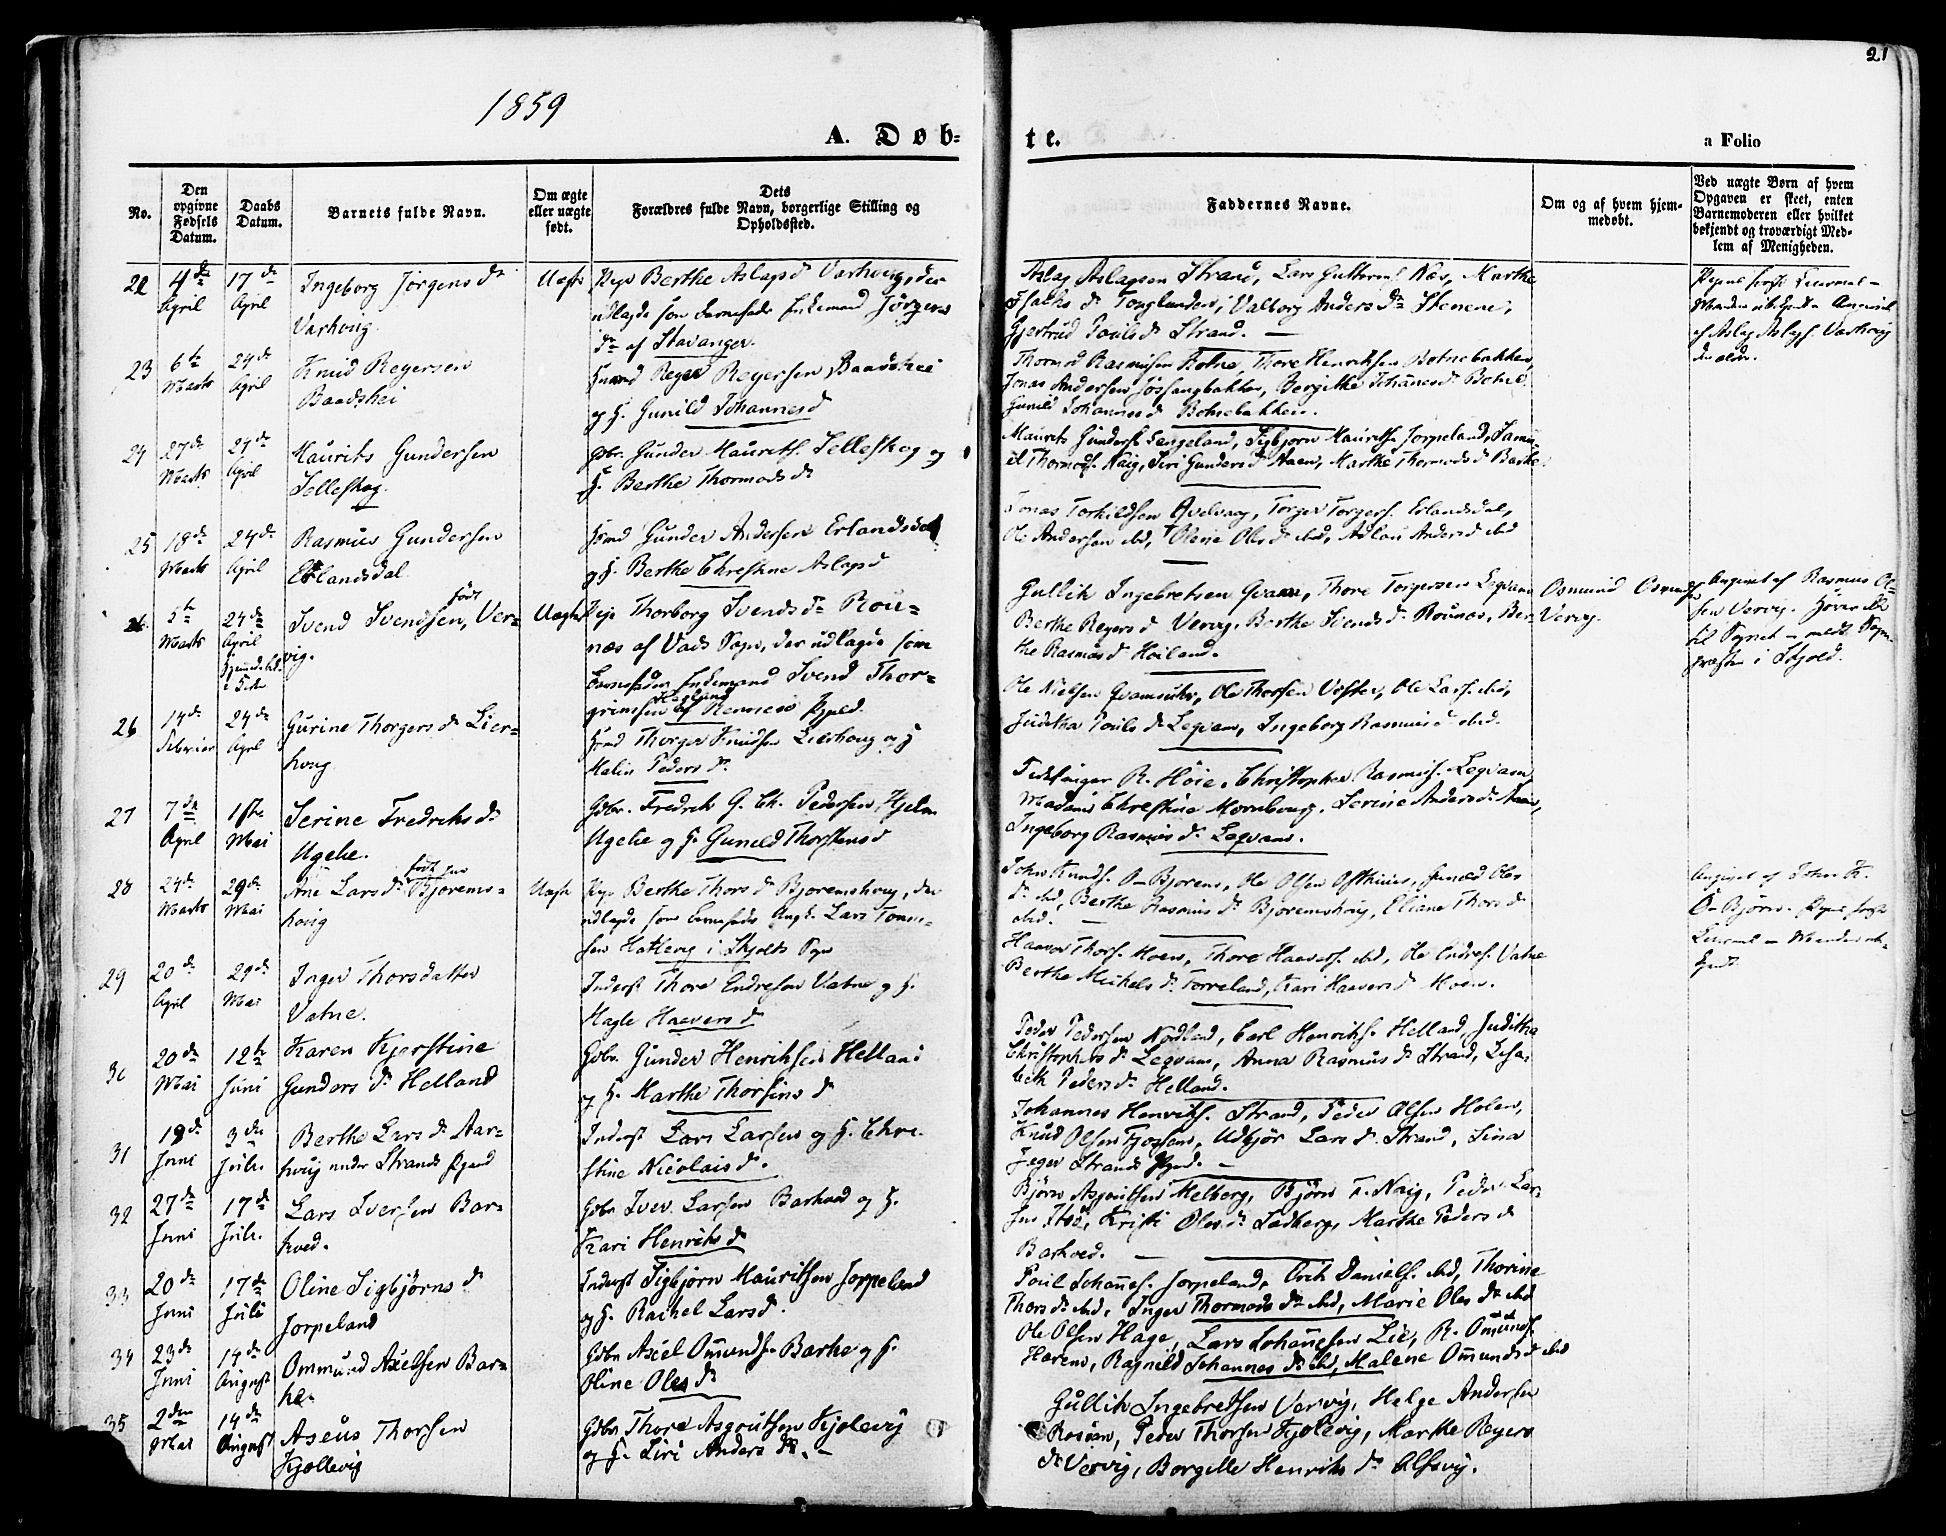 21
1859
A. Døb=
te.
a Folio
No.
Den opgivne Fødsels Datum.
Daabs Datum.
Barnets fulde Navn.
Om ægte eller uægte født.
Dets
Forældres fulde Navn, borgerlige Stilling og Opholdssted.
Faddernes Navne.
Om og af hvem hjem-
medøbt.
Ved uægte Børn af hvem
Opgaven er skeet, enten
Barnemoderen eller hvilket
bekjendt og troværdigt Med-
lem af Menigheden.
22 4de April 17de April Ingeborg Jørgensd. Varhoug Uægte
Pige Berthe Aslagsd. Varhoug, der
udlagde som Barnefader Enkemand Jörgen
af Stavanger.
Aslag Aslagsen Strand, Lars Guttorms. Næs, Marthe
d. Tonglanden, Valborg Andersd. Stenene,
Gjertrud Poulsd. Strand.
af Aslag Aslags. Varhoug
23 6te Marts 24de April Knud Regersen Baadshei
Reger Regersen Baadshei
og H. Gunild Johannesd.
Thormod Rasmusen Botne, Thore Henriksen Botnebakken,
Jonas Andersen Jössangbakken, Bergithe Johannesd. Botne
Gunild Johannesd. Botnebakken.
24 27de Marts 24de April Maurits Gundersen Selleskog.
Gbr. Gunder Maurits. Selleskog og
H. Berthe Thormodsd.
Maurits Gunders. Tengeland, Sigbjørn Maurits. Jørpeland, Samu-
el Thormods. Naig, Siri Gundersd. Naen, Marthe Thormodsd. Barke.
25 18de Marts 24de April Rasmus Gundersen Erlandsdal
Huusmd Gunder Andersen Erlandsdal
og H. Berthe Christine Aslagsd
Jonas Torkildsen Qvelvaag, Torger Torgers. Erlandsdal,
Ole Andersen ibid, Olene Olesd. ibid, Adlau Andersd ibid
26. 5te Marts 24de April Svend Svendsen, født Ver-
vig. Uægte
Pige Thorborg Svendsd. Rou-
næs af Vads Sogn, der udlagde som
Barnefader Enkemand Svend Thor-
grimsen Hegland af Rennesø Pgjeld.
Gullik Ingebretsen Qvam, Thore Torgersen Leqvam
Berthe Regersd. Vervig, Berthe Svendsd. Rounæs, Ber-
the Rasmusd Höiland.
Osmund Osmunds.
Vervig.
Angivet af Rasmus Ol-
sen Vervig. Hører ikke
til Sognet — medt. Sogne-
præsten i Skjold.
26 14de Februar 24de April Gurine Thorgersd. Lier-
houg
Huusmd Thorger Knudsen Lierhoug og H
Malin Pedersd.
Ole Nielsen Qvamsøen, Ole Thorsen Voster, Ole Lars. ibid,
Juditha Poulsd. Leqvam, Ingeborg Rasmusd. ibid.
27 7de April 1ste Mai Serine Fredriksd. Ugelie.
Gbr. Fredrik G. Ch. Pedersen Hjelm
Ugelie og H. Gunild Thorstensd
R. Höie, Christopher Rasmus. Leqvam
Madam Christine Mornboug, Serine Andersd.
Ingeborg Rasmusd. Leqvam.
28 24de Marts 29de Mai Ane Larsd. født paa Bjørems-
houg Uægte
Pige Berthe Thorsd. Bjøremshoug, der
udlagde som Barnefader Ungk. Lars Tønne-
sen Hatlevig i Skjolds Sogn
John Knuds. Ø-Bjørem, Ole Olsen Osthuus, Gunild Oles
d. ibid, Berthe Rasmusd. Bjøremshoug, Eliane Thorsd.
ibid.
Angivet af John K.
Ø-Bjørem.
29 20de April 29de Mai Inger Thorsdatter Vatne.
Inderst Thore Endresen Vatne og H.
Magle Haaversd
Haaver Thors. Moen, Thore Haavers. ibid, Ole Endres. Vatne
Berthe Mikkelsd. Torreland, Kari Haaversd. Moen.
30 20de Mai 12te Juni Karen Kjerstine
Gundersd. Helland
Gbr. Gunder Henriksen Helland
og H. Marthe Thorsensd
Peder Pedersen Nordland, Carl Henriks. Helland, Juditha
Christophersd. Leqvam, Anna Rasmusd. Strand, Lisa-
beth Pedersd. Helland.
31 19de Juni 3die Juli. Berthe Larsd. Aar-
houg under Strands Pgjeld
Inderst Lars Larsen og H. Chri-
stine Nicolaisd.
Johannes Henriks. Strand, Peder Olsen Holen,
Knud Olsen Fjossen, Udbjør Larsd. Strand, Sina
Jeger Strands Pgjd.
32 27de Juni 17de Juli. Lars Iversen Bar-
kved.
Gbr Iver Larsen Barkved og H.
Kari Henriksd
Bjørn Asgoutsen Melberg, Bjørn T. Naig, Peder Lar-
sen Stød, Kristi Olesd. Ladberg, Marthe Pedersd
Barkved.
33 20de Juni 17de Juli Oline Sigbjørnsd. Jorpeland
Inderst Sigbjørn Mauritsen Jorpeland
og H. Rachel Larsd.
Poul Johannes. Jorpeland, Erik Daniels. ibid, Thorine
Thorsd. ibid, Inger Thormodsd. ibid, Marie Olesd. ibid
34 23de Juni 14de August Ommund Axelsen Bar-
ke.
Gbr Axel Ommunds. Barke og H.
Oline Olesd
Ole Olsen Hage, Lars Johannesen Lie, R. Ommunds.
Harem, Ragnild Johannesd. ibid, Malene Ommundsd. ibid
35 2den Mai 14de August Aseus Thorsen Kjollevig
Gbr Thore Asgoutsen Kjolevig
og H. Siri Andersd.
Gullik Ingebretsen Vervig, Helge Andersen
Rosøen, Peder Thorsen Kjolevig, Marthe Regers
d. Vervig, Borgille Henriksd. Alsvig.